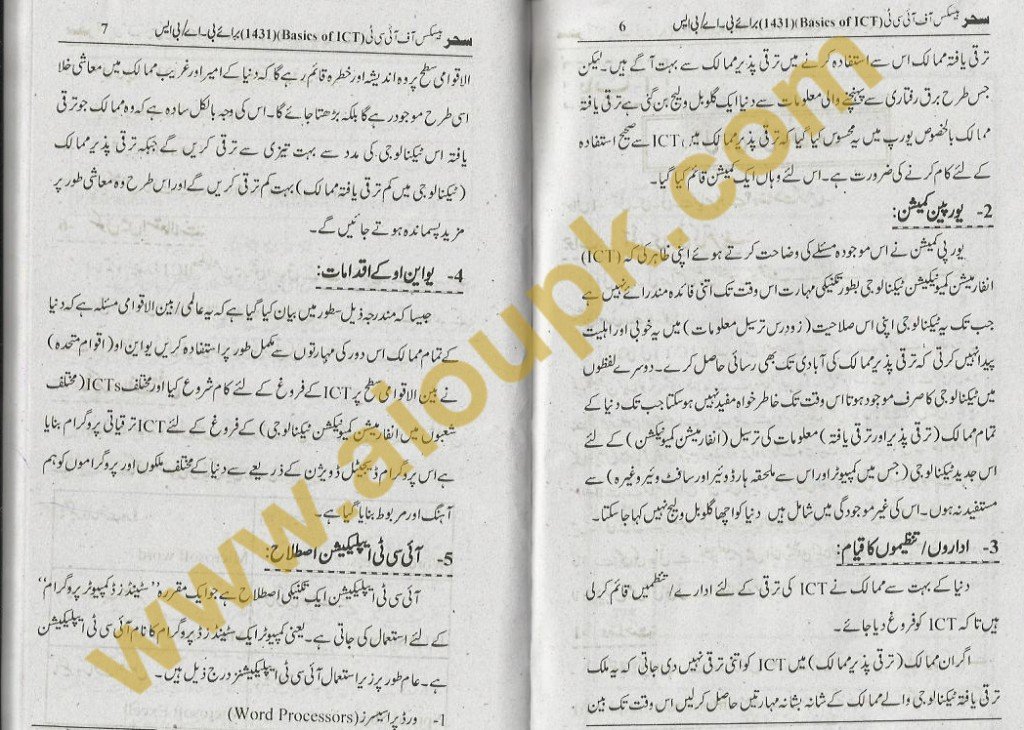 سحر بیسکس آف آئی سی ٹی (Basics of ICT)(1431) برائے بی۔اے/بی ایس
6
ترقی یافتہ ممالک اس سے استفادہ کرنے میں ترقی پذیر ممالک سے بہت آگے ہیں۔ لیکن
جس طرح برق رفتاری سے پہنچنے والی معلومات سے دنیا ایک گلوبل ولیج بن گئی ہے ترقی یافتہ
ممالک بالخصوص یورپ میں یہ محسوس کیا گیا کہ ترقی پذیر ممالک میں ICT سے صحیح استفادہ
کے لئے کام کرنے کی ضرورت ہے۔ اس لئے وہاں ایک کمیشن قائم کیا گیا۔
2- یورپین کمیشن:
یورپی کمیشن نے اس موجودہ مسئلے کی وضاحت کرتے ہوئے اپنی ظاہر کی کہ (ICT)
انفارمیشن کمیونیکیشن ٹیکنالوجی بطور تکنیکی مہارت اس وقت تک اتنی فائدہ مند رائے نہیں ہے
جب تک یہ ٹیکنالوجی اپنی اس صلاحیت (زود رس ترسیل معلومات) میں یہ خوبی اور اہلیت
پیدا نہیں کرتی کہ ترقی پذیر ممالک کی آبادی تک بھی رسائی حاصل کرے۔ دوسرے لفظوں
میں ٹیکنالوجی کا صرف موجود ہونا اس وقت تک خاطر خواہ مفید نہیں ہو سکتا جب تک دنیا کے
تمام ممالک (ترقی پذیر اور ترقی یافتہ) معلومات کی ترسیل (انفارمیشن کمیونیکیشن) کے لئے
اس جدید ٹیکنالوجی (جس میں کمپیوٹر اور اس سے ملحقہ ہارڈ وئیر اور سافٹ وئیر وغیرہ) سے
مستفید نہ ہوں۔ اس کی غیر موجودگی میں شامل ہیں دنیا کو اچھا گلوبل ولیج نہیں کہا جا سکتا۔
3- اداروں/تنظیموں کا قیام:
دنیا کے بہت سے ممالک نے ICT کی ترقی کے لئے ادارے/تنظیمیں قائم کر لی
ہیں تا کہ ICT کو فروغ دیا جائے۔
اگر ان ممالک (ترقی پذیر ممالک) میں ICT کو اتنی ترقی نہیں دی جاتی کہ یہ ملک
ترقی یافتہ ٹیکنالوجی والے ممالک کے شانہ بشانہ مہارتیں حاصل کر لیں اس وقت تک بین
سحر بیسکس آف آئی سی ٹی (Basics of ICT)(1431) برائے بی۔اے/بی ایس
7
الاقوامی سطح پر وہ اندیشہ اور خطرہ قائم رہے گا کہ دنیا کے امیر اور غریب ممالک میں معاشی خلا
اسی طرح موجود رہے گا بلکہ بڑھتا جائے گا۔ اس کی وجہ بالکل سادہ ہے کہ وہ ممالک جو ترقی
یافتہ اس ٹیکنالوجی کی مدد سے بہت تیزی سے ترقی کریں گے جبکہ ترقی پذیر ممالک
(ٹیکنالوجی میں کم ترقی یافتہ ممالک) بہت کم ترقی کریں گے اور اس طرح وہ معاشی طور پر
مزید پسماندہ ہوتے جائیں گے۔
4- یو این او کے اقدامات:
جیسا کہ مندرجہ ذیل سطور میں بیان کیا گیا ہے کہ یہ عالمی/بین الاقوامی مسئلہ ہے کہ دنیا
کے تمام ممالک اس دور کی مہارتوں سے مکمل طور پر استفادہ کریں یو این او (اقوام متحدہ)
نے بین الاقوامی سطح پر ICT کے فروغ کے لئے کام شروع کیا اور مختلف ICTs (مختلف
شعبوں میں انفارمیشن کمیونیکیشن ٹیکنالوجی) کے فروغ کے لئے ICT ترقیاتی پروگرام بنایا
ہے اس پروگرام ڈیجیٹل ڈویژن کے ذریعے سے دنیا کے مختلف ملکوں اور پروگراموں کو ہم
آہنگ اور مربوط بنایا گیا ہے۔
5- آئی سی ٹی ایپلیکیشن اصطلاح:
آئی سی ٹی ایپلیکیشن ایک تکنیکی اصطلاح ہے جو ایک مقررہ "سٹینڈرڈ کمپیوٹر پروگرام"
کے لئے استعمال کی جاتی ہے۔ یعنی کمپیوٹر ایک سٹینڈرڈ پروگرام کا نام آئی سی ٹی ایپلیکیشن
ہے۔ عام طور پر زیر استعمال آئی سی ٹی ایپلیکیشنز درج ذیل ہیں۔
1- ورڈ پراسیسرز (Word Processors)
www.aioupk.com